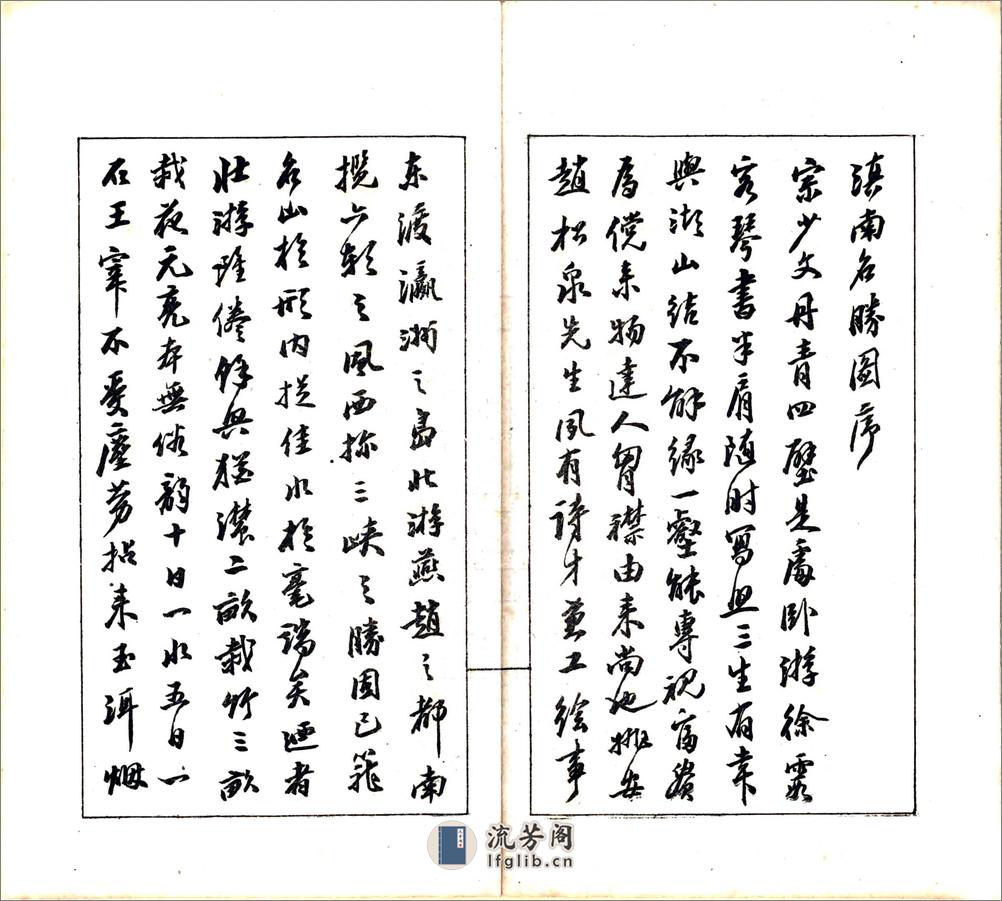 滇南名勝圖序
宗少文丹青四壁是處臥游徐霞
客琴書半肩隨時寫照三生有幸
與湖山結不解緣一壑能專視富貴
為儻來物達人胷襟由來尚也姚安
趙松泉先生夙有詩才兼工繪事
東渡瀛洲之島北游燕趙之都南
攬六朝之風西探三峽之勝固已羅
名山於形內挹佳水於毫端矣迺者
壯游雖倦餘興猶濃二畝栽竹三畝
栽花元亮本無俗韻十日一水五日一
石王宰不受塵勞拈來玉洱烟
流芳阁
lfglib.cn